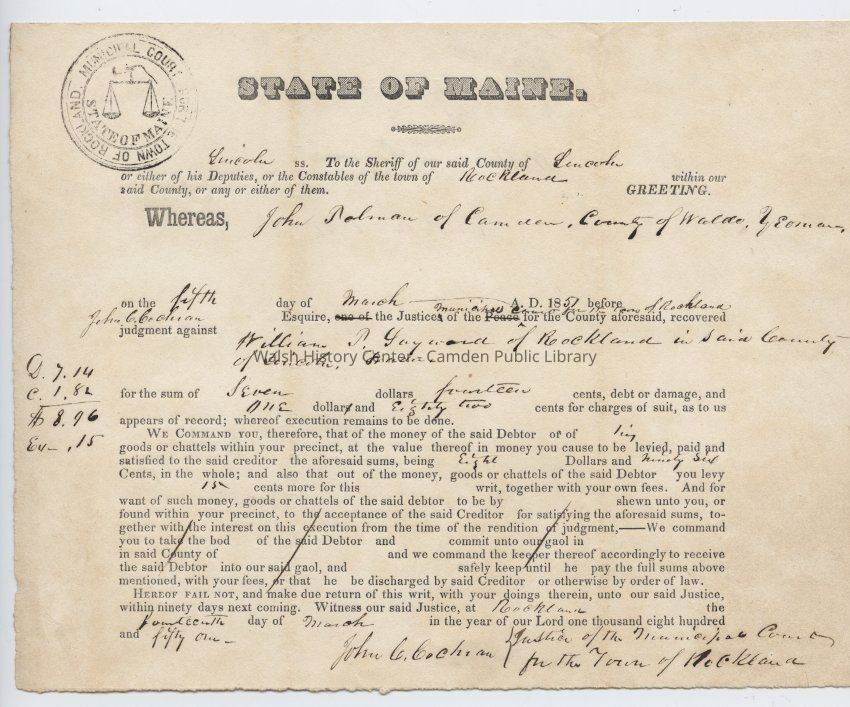 MUNICIPAL COURT FOR THE TOWN OF ROCKLAND.
STATE OF MAINE
STATE OF MAINE.
Lincoln ss. To the Sheriff of our said County of Lincoln
or either of his Deputies, or the Constables of the town of Rockland within our
said County, or any or either of them. GREETING.
Whereas, John of Camden, County of Waldo, Yeoman,
on the fifth day of March A. D. 1851 before
John C. Cochran Esquire, one of the Justices of the Peace Municipal Court for the Town of Rockland for the County aforesaid, recovered
judgment against William P. of Rockland in Said County
of Lincoln,
Walsh History Center - Camden Public Library
D. 7.14
C. 1.82
$ 8.96
Ex - .15
for the sum of Seven dollars fourteen cents, debt or damage, and
one dollars and Eighty two cents for charges of suit, as to us
appears of record; whereof execution remains to be done.
WE COMMAND YOU, therefore, that of the money of the said Debtor or of his
goods or chattels within your precinct, at the value thereof in money you cause to be levied, paid and
satisfied to the said creditor the aforesaid sums, being Eight Dollars and Ninety Six
Cents, in the whole; and also that out of the money, goods or chattels of the said Debtor you levy
15 cents more for this writ, together with your own fees. And for
want of such money, goods or chattels of the said debtor to be by shewn unto you, or
found within your precinct, to the acceptance of the said Creditor for satisfying the aforesaid sums, to-
gether with the interest on this execution from the time of the rendition of judgment,—We command
you to take the bod of the said Debtor and commit unto our gaol in
in said County of and we command the keeper thereof accordingly to receive
the said Debtor into our said gaol, and safely keep until he pay the full sums above
mentioned, with your fees, or that he be discharged by said Creditor or otherwise by order of law.
HEREOF FAIL NOT, and make due return of this writ, with your doings therein, unto our said Justice,
within ninety days next coming. Witness our said Justice, at Rockland the
fourteenth day of March in the year of our Lord one thousand eight hundred
and fifty one -
John C. Cochran Justice of the Municipal Court
for the Town of Rockland